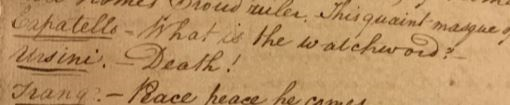 Homes Proud ruler. This quaint masque of
Capatello - What is the watchword? -
Ursini. - Death!
Franq: - Peace peace he comes